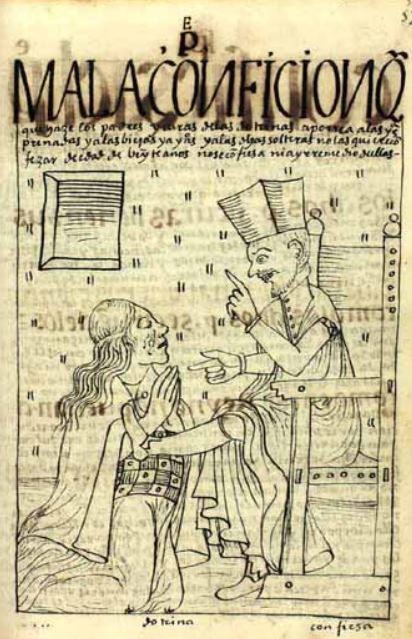 E
P
MALA CŌNFICION Q̃
que haze los padres y curas delas dotrinas aporrea alas
preñadas yalas biejas ya yalas dhas solteras nolas quiere cõ
fezar de edad de beȳte años nose cõfiesa niay rremedio dellas-
dotrina
confiesa